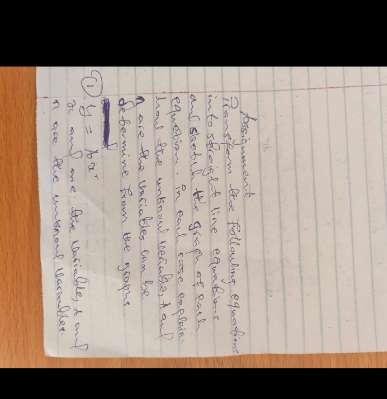 Assignment
Transform the following equations
into straight line equations
and sketch the graph of each
equation. in each case explain
how the unknown variable, λ and
n are the variables can be
determine from the graphs
① y = λxⁿ
x and are the variable, λ and
n are the unknown variables.